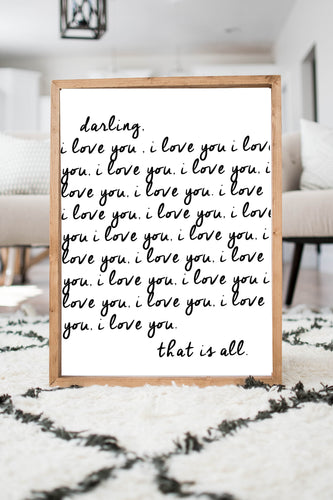 darling,
i love you , i love you i love
you, i love you, i love you, i
love you, i love you, i love
i love you, i love you, i love
you i love you, i love you, i
love you, i love you, i love
you, i love you, i love you i
love you, i love you, i love
you, i love you.
that is all.